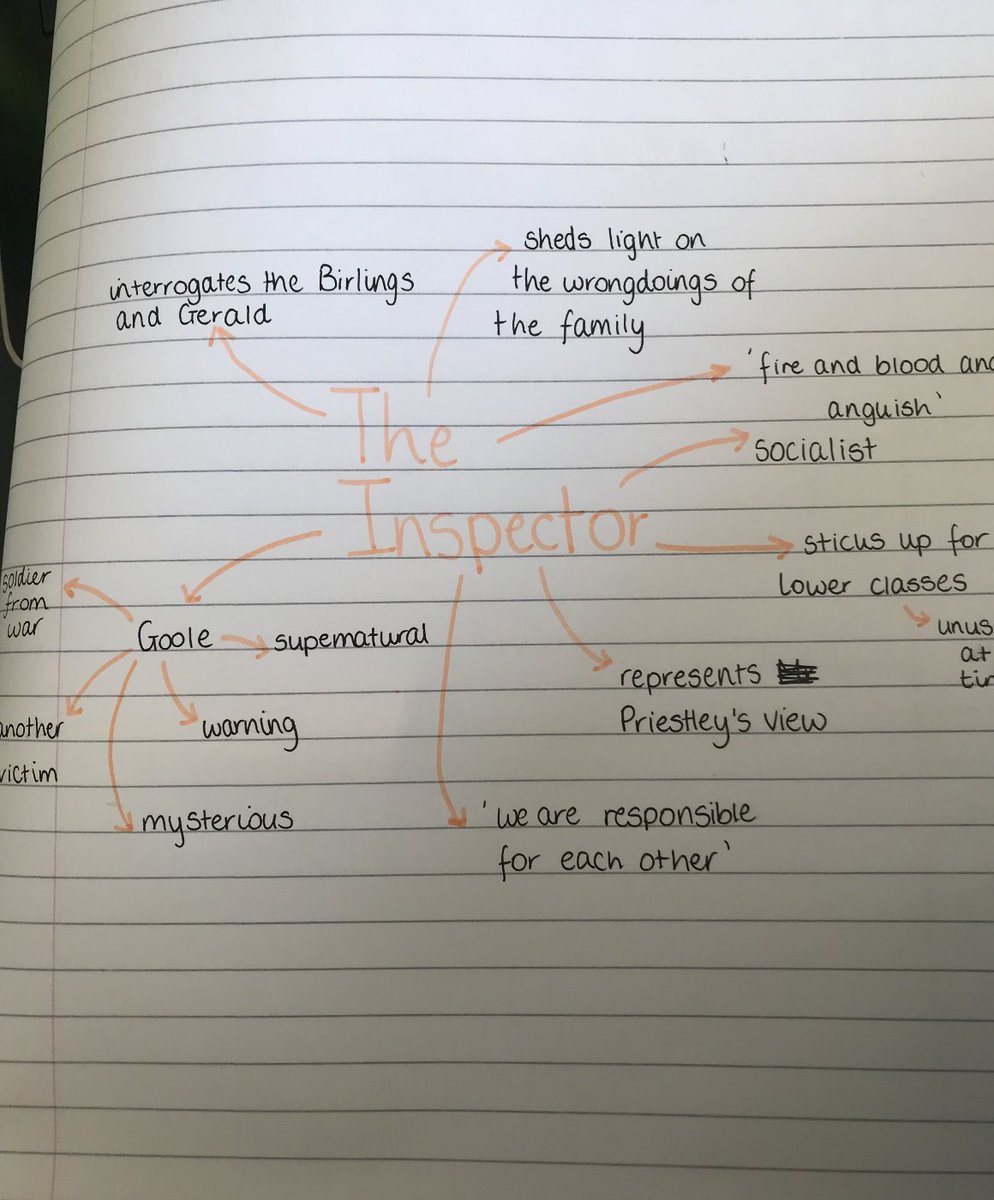 sheds light on
the wrongdoings of
the family
interrogates the Birlings
and Gerald
'fire and blood and
anguish'
The
Inspector
socialist
sticus up for
lower classes
unus
at
tim
soldier
from
war
Goole
supernatural
another
victim
warning
mysterious
represents
Priestley's view
'we are responsible
for each other'